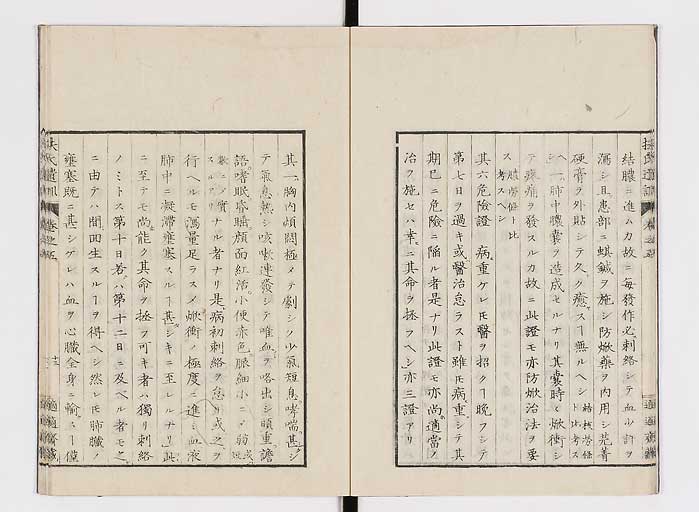 結膿ニ進ムカ故ニ毎發作必刺絡シテ血少許ヲ
瀉シ且患部ニ蜞鍼ヲ施シ防焮藥ヲ内用シ芫菁
硬膏ヲ外貼シテ久ク癒スヿ無ルヘシ
結核勞條ト比考ス
ヘシ肺中膿囊ヲ造成セルナリ其囊時ニ焮衝シ
テ疼痛ヲ發スルカ故ニ此證モ亦防焮治法ヲ要
ス
考スヘシ
其六危險證 病重ケレ𪜈醫ヲ招クヿ晩フシテ
第七日ヲ過キ或醫治怠ラスト雖𪜈病重シテ其
期已ニ危險ニ陥ル者是ナリ此證モ亦尚適當ノ
治ヲ施セハ幸ニ其命ヲ拯フヘシ亦三證アリ
其一胸内煩悶極メテ劇シク少氣短息哮喘甚シ
テ氣息熱シ咳嗽連發シテ唯血ヲ咯出シ頭重譫
語嗜眠昏睡顔面紅活小便赤色脈細小ニメ弱
是病初刺絡ヲ怠リ或之ヲ
行ヘルモ瀉量足ラスメ焮衝ノ極度ニ進ミ血液
肺中ニ凝滞壅塞スルヿ甚シキニ至レルナリ此
ニ至テモ尚能ク其命ヲ拯フ可キ者ハ獨リ刺絡
ノミトス第十日若ハ第十二日ニ及ヘル者モ之
ニ由テハ間回生スルヿヲ得ヘシ然レ𪜈肺臓ノ
壅塞既ニ甚シケレハ血ヲ心臓全身ニ輸スヿ僅
扶氏遺訓
卷之五
適適齋藏